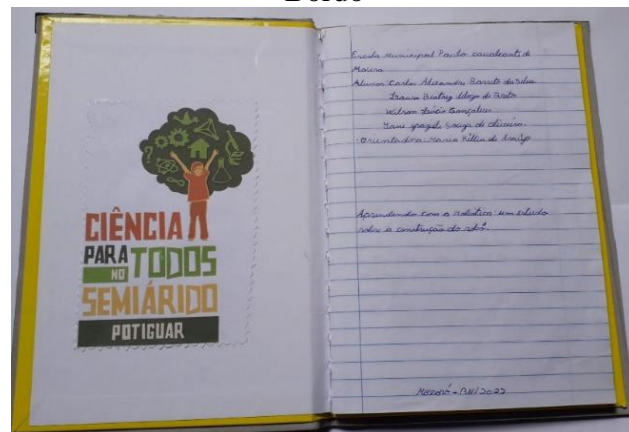 Bordo
CIÊNCIA
PARA TODOS
NO
SEMIÁRIDO
POTIGUAR
Escola Municipal Paulo Cavalcanti de
Moura
Alunos: Carlos Alexandre Barreto da Silva
Beatriz de Brito
Gonçalves
Souza de Oliveira.
Orientadora: Maria de Araújo
Aprendendo com a robótica: um estudo
sobre a construção do robô.
Mossoró - RN/2022